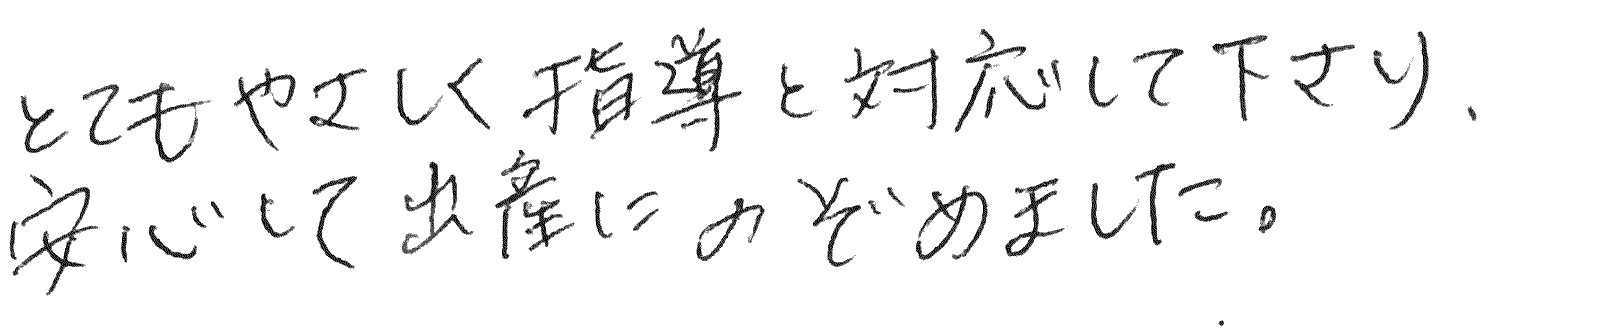 とてもやさしく指導と対応して下さり、
安心して出産にのぞめました。